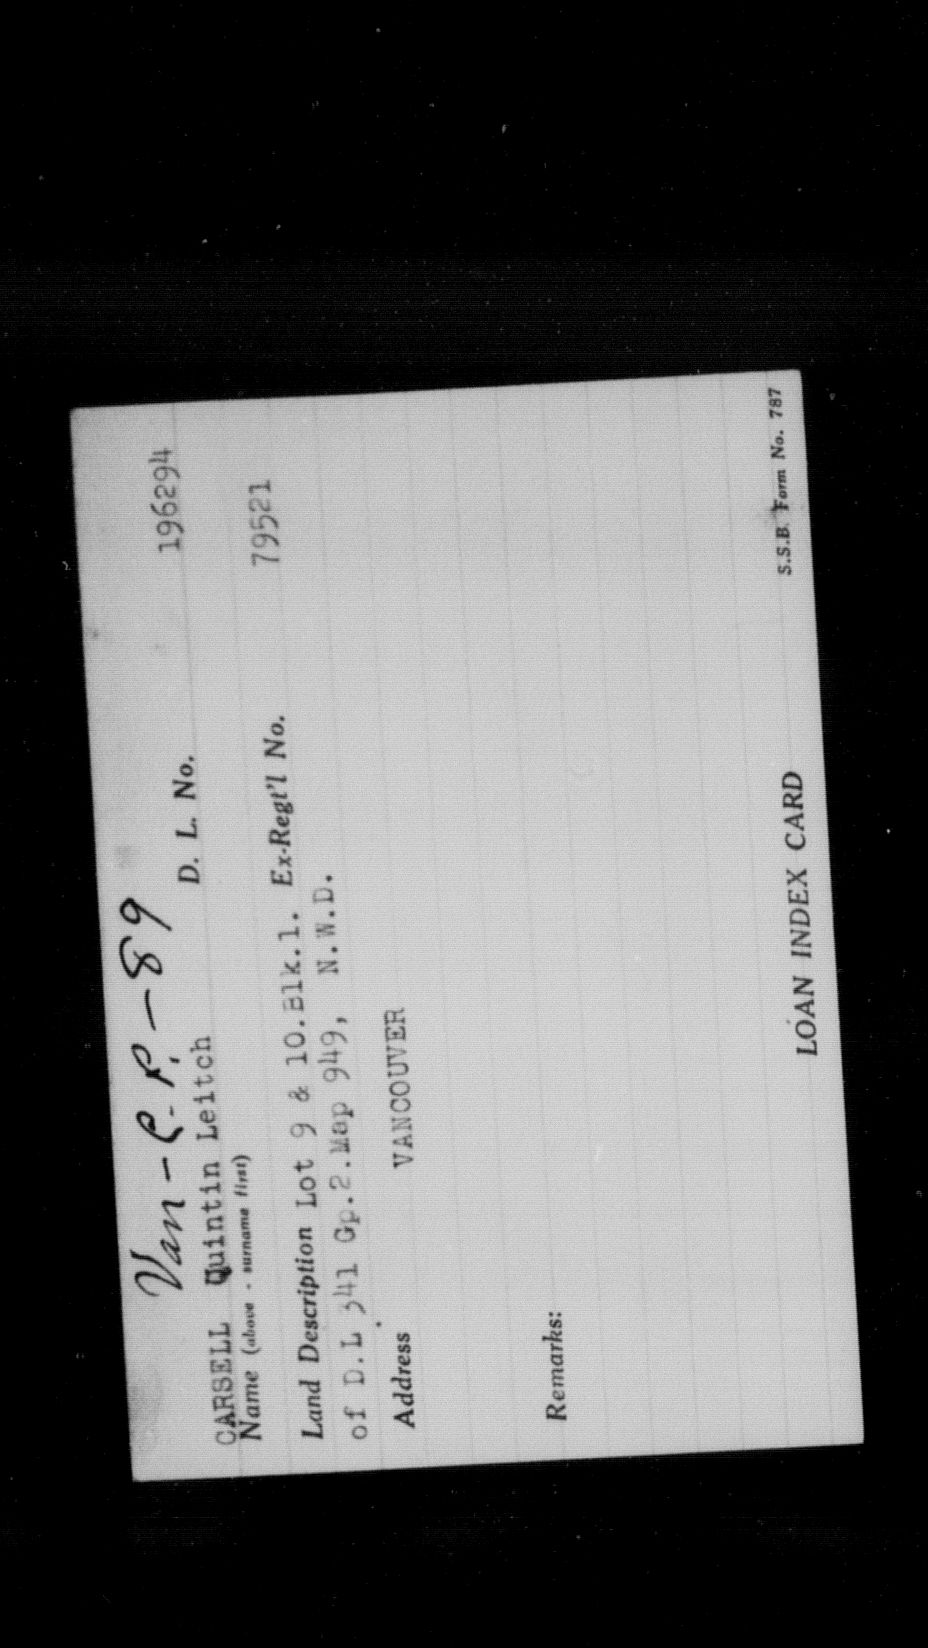 Van - C. P. - 89
196294
CARSELL Quintin Leitch D. L. No.
Name (above - surname first) 79521
Land Description Lot 9 & 10.Blk.1. Ex-Regt'l No.
of D.L 341 Gp.2.Map 949, N.W.D.
Address VANCOUVER
Remarks:
LOAN INDEX CARD S.S.B. Form No. 787